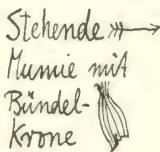 Stehende
Mumie mit
Bündel-
Krone